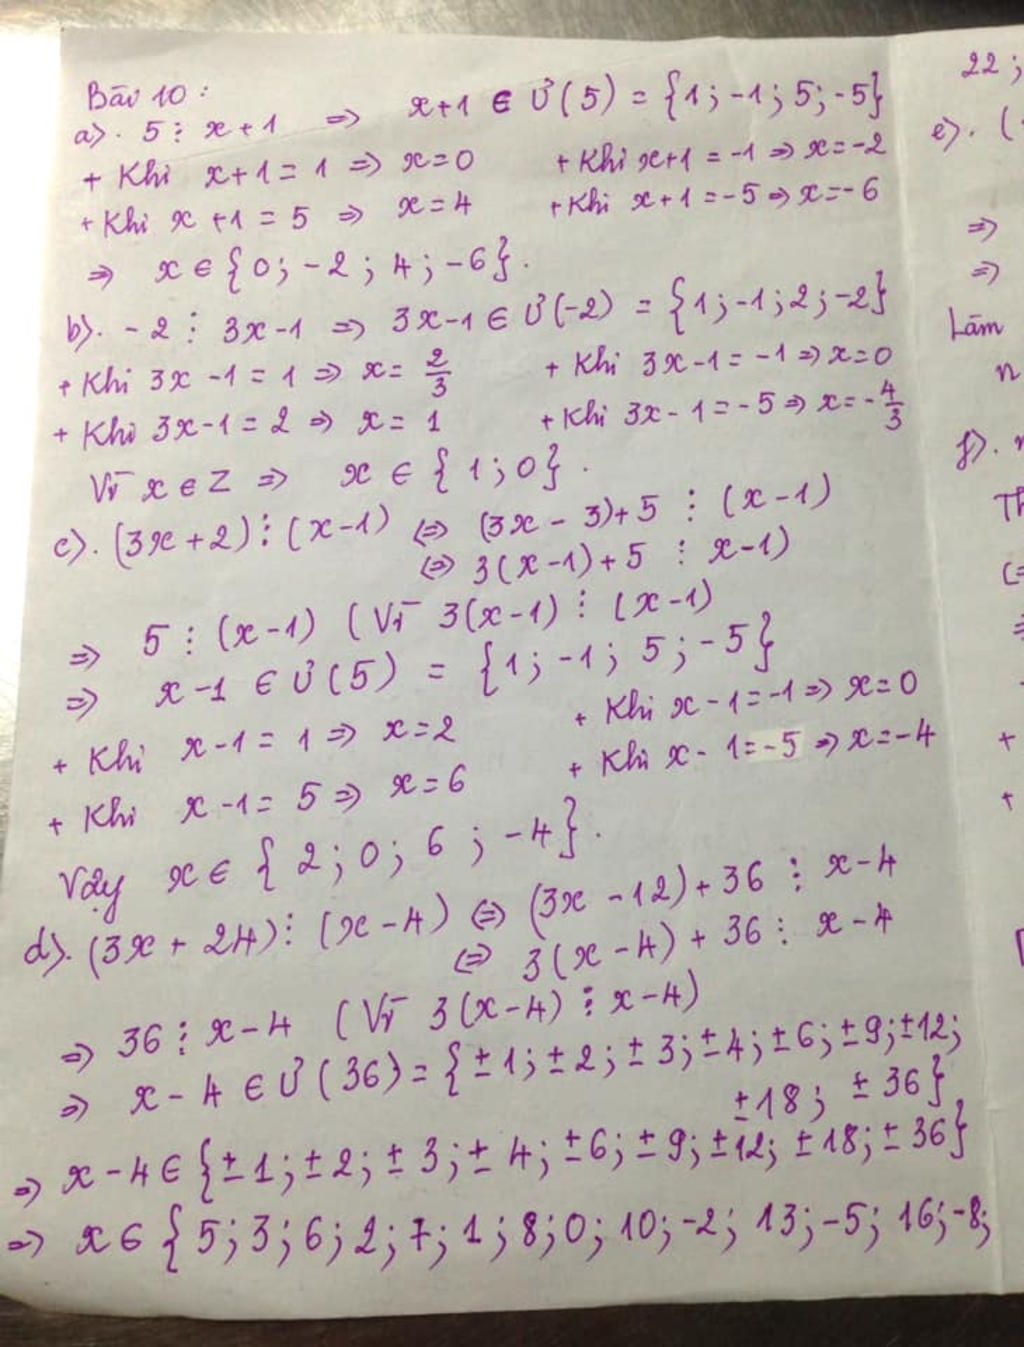 Bài 10 :
a). 5 ⋮ x+1 => x+1 ∈ Ư(5) = {1 ; -1 ; 5 ; -5}
+ Khi x+1 = 1 => x=0 + Khi x+1 = -1 => x=-2
+ Khi x+1 = 5 => x=4 + Khi x+1 = -5 => x=-6
=> x ∈ {0 ; -2 ; 4 ; -6}.
b). -2 ⋮ 3x-1 => 3x-1 ∈ Ư(-2) = {1 ; -1 ; 2 ; -2}
+ Khi 3x-1 = 1 => x= 2/3 + Khi 3x-1 = -1 => x=0
+ Khi 3x-1 = 2 => x= 1 + Khi 3x-1 = -5 => x=-4/3
Vì x ∈ Z => x ∈ { 1 ; 0} .
c). (3x+2) ⋮ (x-1) <=> (3x-3)+5 ⋮ (x-1)
<=> 3(x-1)+5 ⋮ x-1)
=> 5 ⋮ (x-1) (Vì 3(x-1) ⋮ (x-1)
=> x-1 ∈ Ư(5) = {1 ; -1 ; 5 ; -5}
+ Khi x-1 = 1 => x=2 + Khi x-1=-1 => x=0
+ Khi x-1= 5 => x=6 + Khi x-1=-5 => x=-4
Vậy x ∈ { 2 ; 0 ; 6 ; -4}.
d). (3x + 24) ⋮ (x-4) <=> (3x-12)+36 ⋮ x-4
<=> 3(x-4) + 36 ⋮ x-4
=> 36 ⋮ x-4 (Vì 3(x-4) ⋮ x-4)
=> x-4 ∈ Ư(36) = {±1 ; ±2 ; ±3 ; ±4 ; ±6 ; ±9 ; ±12 ;
±18 ; ±36}
=> x-4 ∈ {±1 ; ±2 ; ±3 ; ±4 ; ±6 ; ±9 ; ±12 ; ±18 ; ±36}
=> x ∈ {5 ; 3 ; 6 ; 2 ; 7 ; 1 ; 8 ; 0 ; 10 ; -2 ; 13 ; -5 ; 16 ; -8 ;
22 ;
e). (
=>
=>
Làm
n
f).
Th
+
+